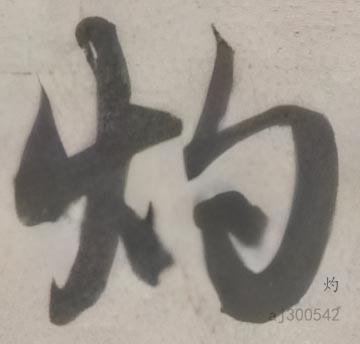 灼
灼
aj300542